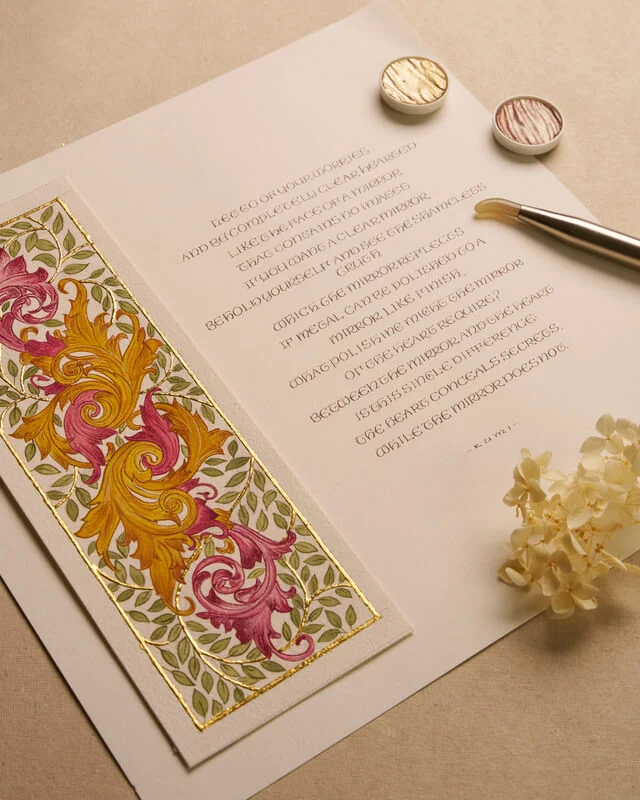 LET GO OF YOUR WORRIES
AND BE COMPLETELY CLEAR HEARTED
LIKE THE FACE OF A MIRROR
THAT CONTAINS NO IMAGES
IF YOU WANT A CLEAR MIRROR
BEHOLD YOURSELF AND SEE THE SHAMELESS
TRUTH
WHICH THE MIRROR REFLECTS
IF METAL CAN BE POLISHED TO A
MIRROR LIKE FINISH,
WHAT POLISHING MIGHT THE MIRROR
OF THE HEART REQUIRE?
BETWEEN THE MIRROR AND THE HEART
IS THIS SINGLE DIFFERENCE:
THE HEART CONCEALS SECRETS,
WHILE THE MIRROR DOES NOT.
-RUMI-